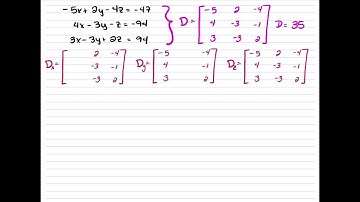 -5x + 2y - 4z = -47
4x - 3y - z = -94
3x - 3y + 2z = 94
D = [ -5 2 -4
4 -3 -1
3 -3 2 ] D = 35
Dx = [ 2 -4
-3 -1
-3 2 ]
Dy = [ -5 -4
4 -1
3 2 ]
Dz = [ -5 2 -4
4 -3 -1
3 -3 2 ]